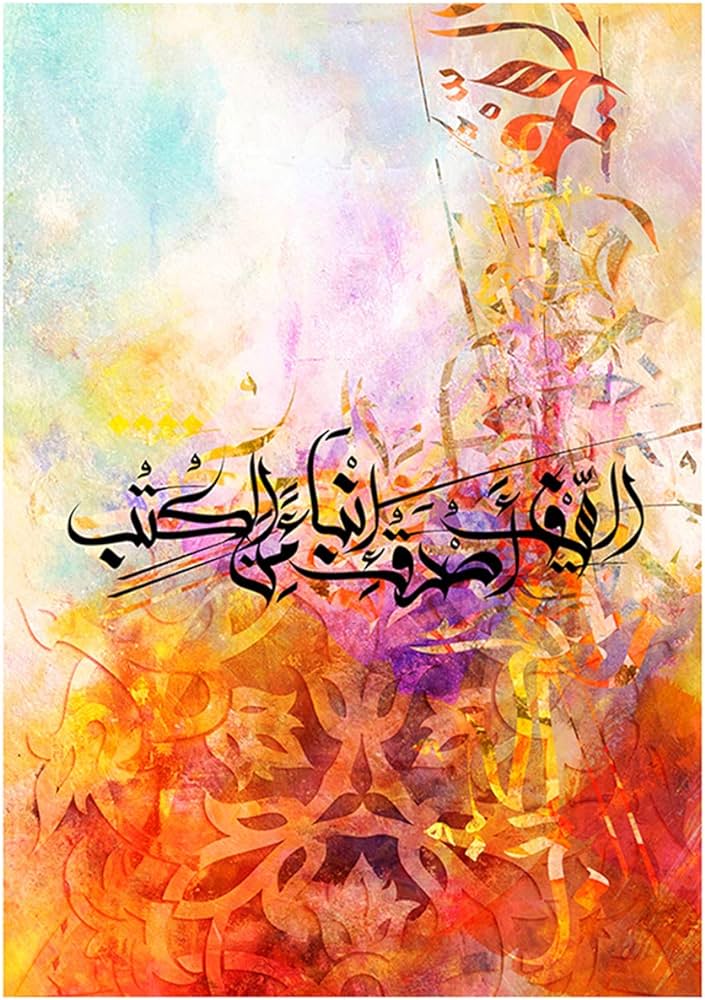 السَّيْفُ أَصْدَقُ إِنْبَاءً مِنَ الْكُتُبِ